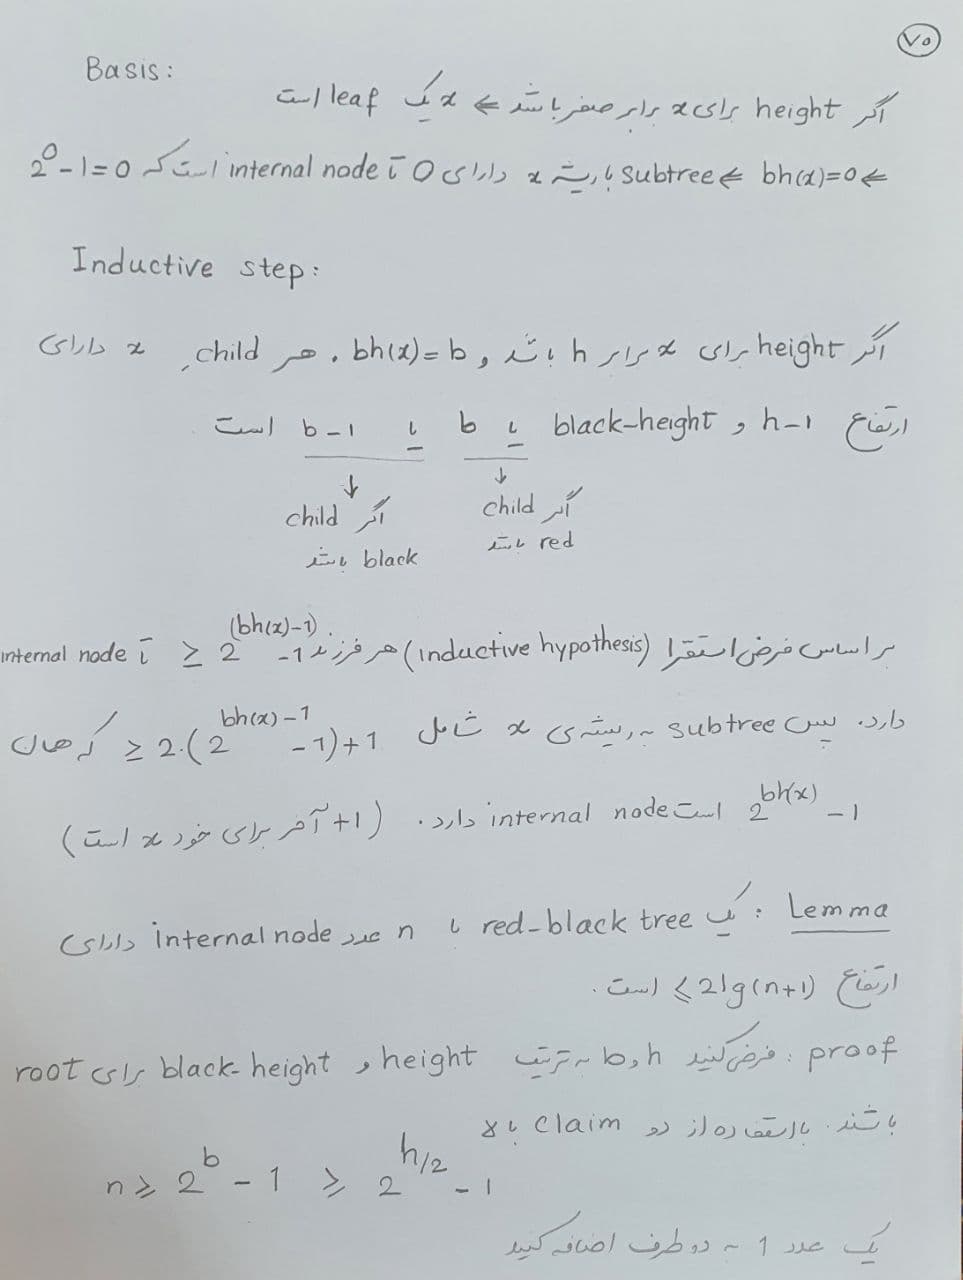 ۷۵
Basis:
اگر height برای x برابر صفر باشد ⇐ x یک leaf است
⇐ bh(x)=0 ⇐ subtree با ریشه x دارای 0 تا internal node است که 2^0-1=0
Inductive step:
اگر height برای x برابر h باشد و bh(x)=b، هر child x دارای
ارتفاع h-1 و black-height یا b یا b-1 است
↓ ↓
اگر child اگر child
red باشد black باشد
بر اساس فرض استقرا (inductive hypothesis) هر فرزند 2^(bh(x)-1) -1 ≤ تا internal node
دارد. پس subtree به ریشه‌ی x شامل 2.(2^bh(x)-1 -1)+1 ≤ که همان
2^bh(x) -1 است internal node دارد. (+1 آخر برای خود x است)
Lemma: یک red-black tree با n عدد internal node دارای
ارتفاع ⩽ 2lg(n+1) است.
proof: فرض کنید h و b به ترتیب height و black-height برای root
باشند. با استفاده از دو claim بالا
n ⩾ 2^b - 1 ⩾ 2^h/2 - 1
یک عدد 1 به دو طرف اضافه کنید